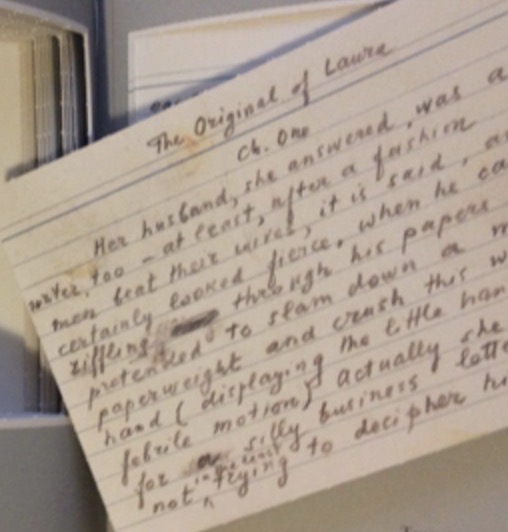 The Original of Laura
Ch. One
Her husband, she answered, was a
writer, too — at least, after a fashion
men beat their wives, it is said, as
certainly looked fierce, when he ca
riffling through his papers
pretended to slam down a m
paperweight and crush this w
hand (displaying the little han
febrile motion) actually she
for silly business lette
not in the least trying to decipher hi